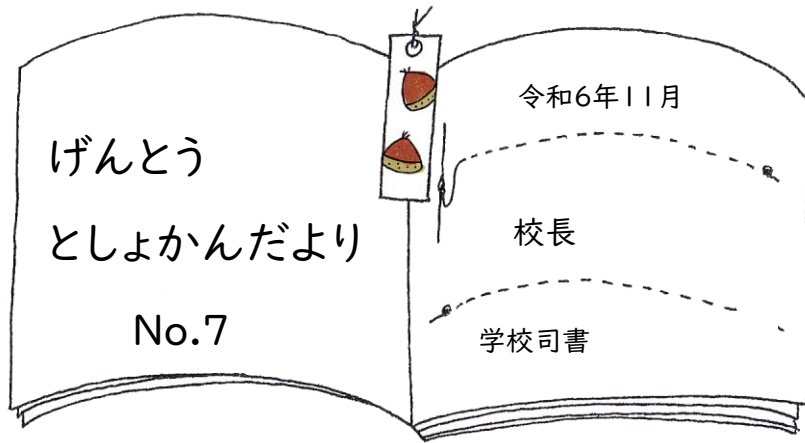 げんとう
としょかんだより
No.7
令和6年11月
校長
学校司書